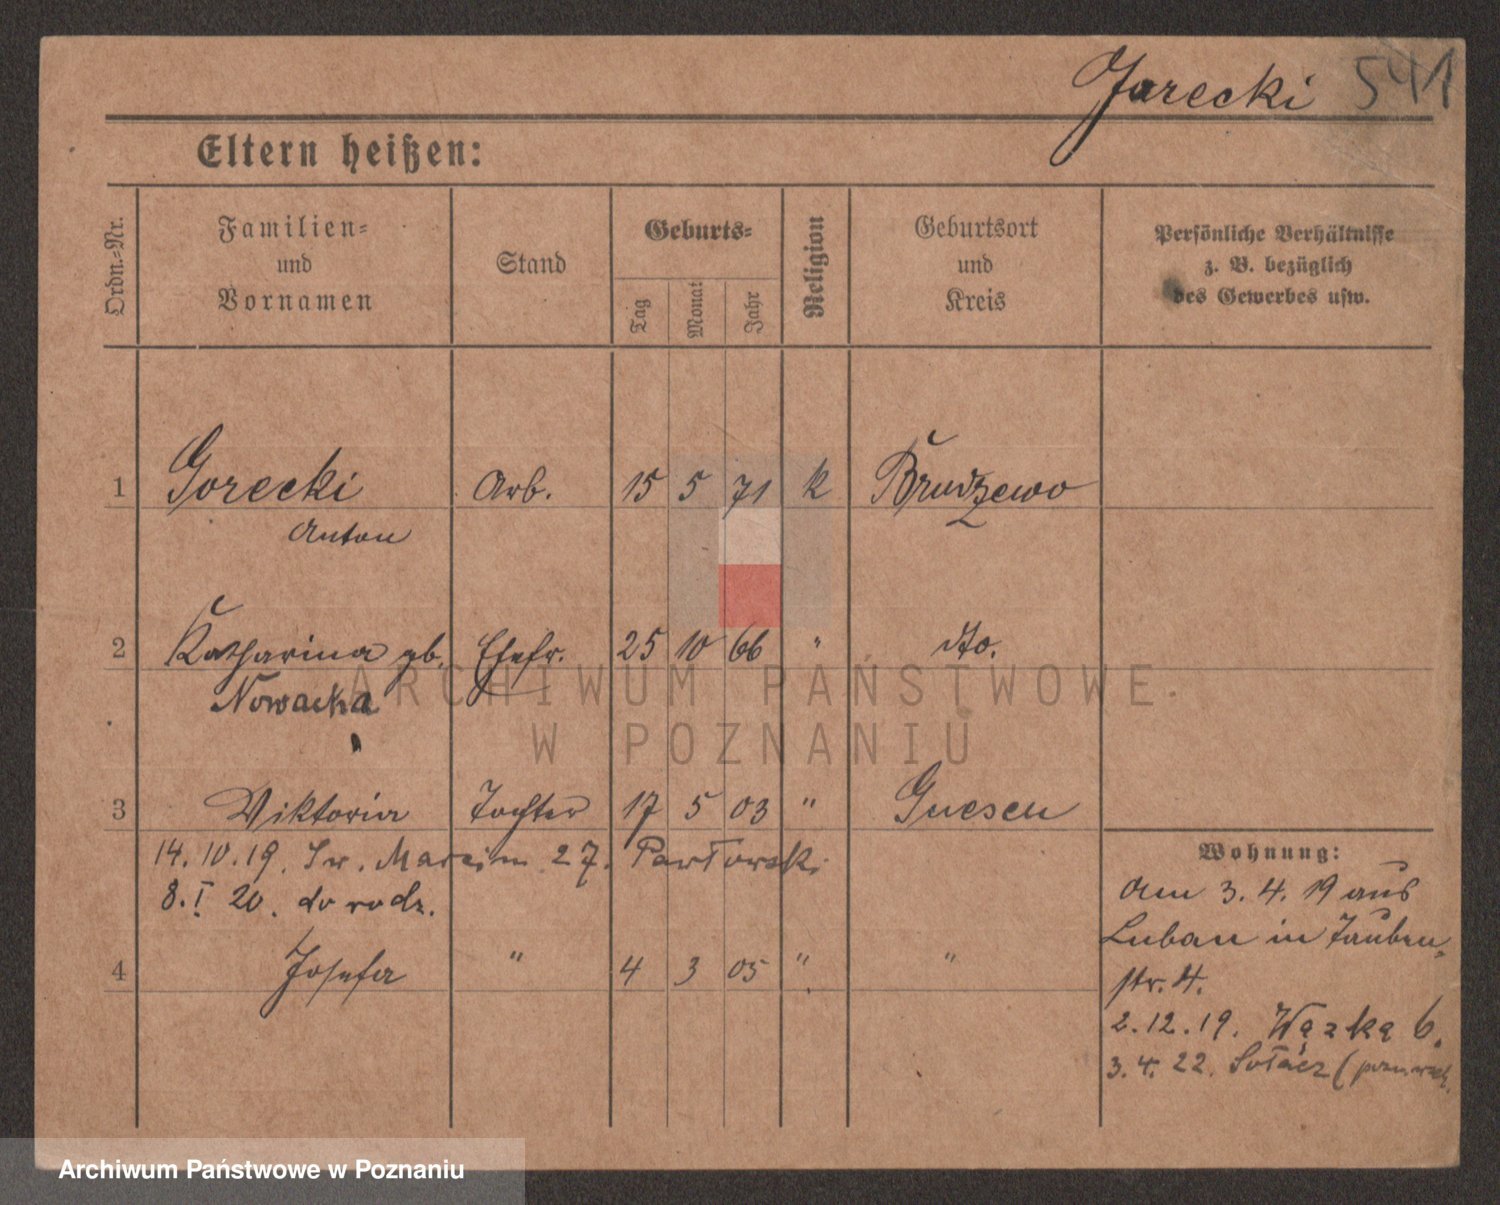 Jarecki 541
Eltern heißen:
Ordn.-Nr.
Familien-
und
Vornamen
Stand
Geburts-
Tag
Monat
Jahr
Religion
Geburtsort
und
Kreis
Persönliche Verhältnisse
z. B. bezüglich
des Gewerbes usw.
1 Gorecki Arb. 15 5 71 k Brudzewo
Anton
2 Katharina gb. Ehefr. 25 10 66 " dto.
Nowacka
3 Viktoria Tochter 17 5 03 " Gnesen
14.10.19. Św. Marcin 27. Pawłowski.
8.I 20. do rodz.
4 Josefa " 4 3 05 " "
Wohnung:
Am 3.4.19 aus
Luban in Tauben-
str. 4.
2.12.19. Wązka 6.
3.4.22. Sołacz
ARCHIWUM PAŃSTWOWE
W POZNANIU
Archiwum Państwowe w Poznaniu